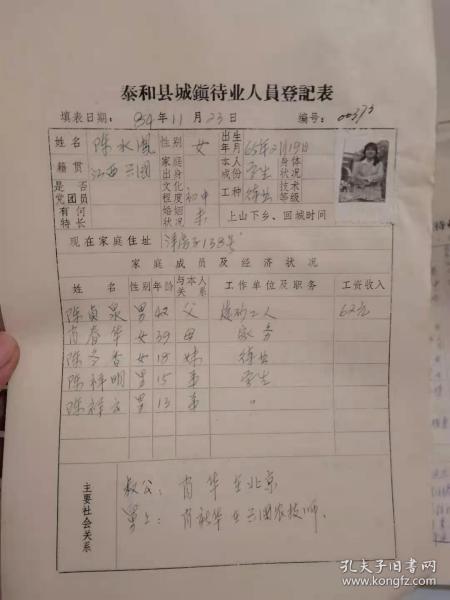 泰和县城鎮待业人員登記表
填表日期: 84年11月23日 编号: 00373
姓名 陈水凤 性别 女 出生年月 65年2月19日
籍贯 江西兴国 家庭出身 本人成份 学生 身体状况
是否党团员 文化程度 初中 工种 待业 技术等级
有何特长 婚姻状况 未 上山下乡、回城时间
现在家庭住址 138号
家庭成员及经济状况
姓名 性别 年龄 与本人关系 工作单位及职务 工资收入
陈贞泉 男 42 父 工人 62元
肖春华 女 39 母 家务
陈冬香 女 18 妹 待业
陈祥明 男 15 弟 学生
陈祥 男 13 弟 〃
主要社会关系
叔公: 肖华 在北京
舅: 肖 华 在兴国农技师.
孔夫子旧书网
www.kongfz.com